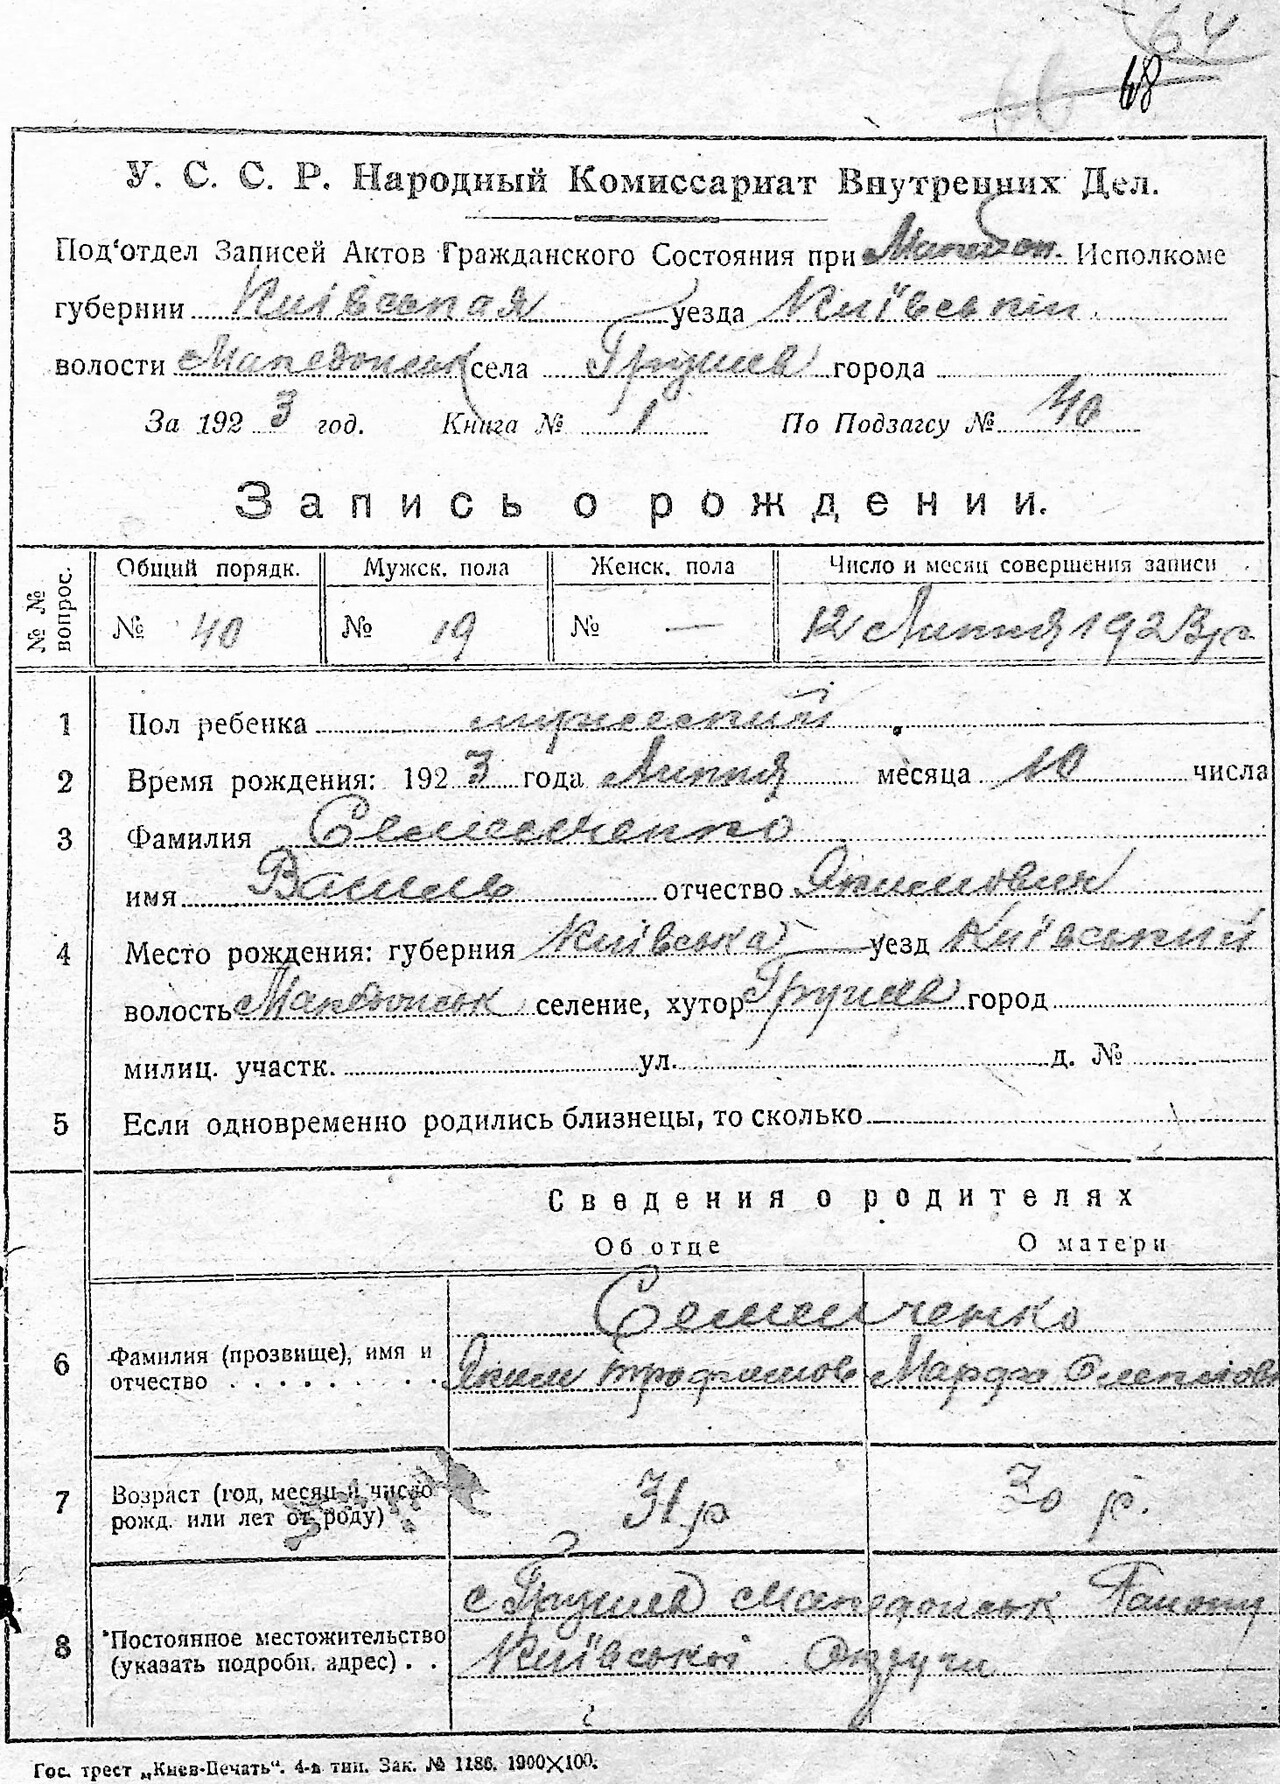 64
66
68
У. С. С. Р. Народный Комиссариат Внутренних Дел.
Под‘отдел Записей Актов Гражданского Состояния при Македон. Исполкоме
губернии Київськая уезда Київський
волости Македонськ села Грушев города
За 1923 год. Книга № 1 По Подзагсу № 40
Запись о рождении.
№ № вопрос.
Общий порядк. Мужск. пола Женск. пола Число и месяц совершения записи
№ 40 № 19 № — 12 Липня 1923 р.
1 Пол ребенка мужеский
2 Время рождения: 1923 года Липня месяца 10 числа
3 Фамилия Семенченко
имя Василь отчество Якимович
4 Место рождения: губерния Київська уезд Київський
волость Македонськ селение, хутор Грушев город
милиц. участк. ул. д. №
5 Если одновременно родились близнецы, то сколько
Сведения о родителях
Об отце О матери
Семенченко
6 Фамилия (прозвище), имя и
отчество . . . . . . . . Яким Трофимов Марфа
7 Возраст (год, месяц и число
рожд. или лет от роду) 31 р 30 р.
с Грушев Македонськ Району
8 Постоянное местожительство
(указать подробн. адрес) . . Київської Округи
Гос. трест „Киев-Печать“. 4-я тип. Зак. № 1186. 1900×100.